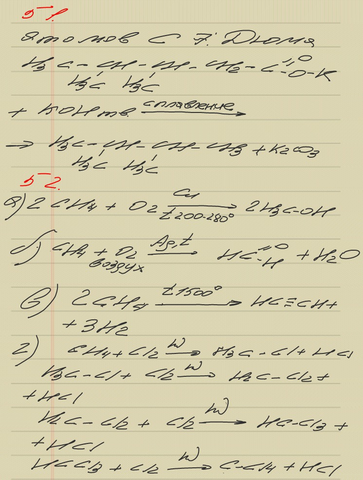 5-1.
атомов C 7. Дюма
H3C-CH-CH-CH2-C=O-O-K
H3C H3C
+ KOH тв сплавление →
→ H3C-CH-CH-CH3 + K2CO3
H3C H3C
5-2.
а) 2CH4 + O2 Cu t200-280° → 2H3C-OH
б) CH4 + O2 Ag,t → HC=O-H + H2O
воздух
в) 2CH4 t1500° → HC≡CH+
+ 3H2
г) CH4+Cl2 hν → H3C-Cl+HCl
H3C-Cl+Cl2 hν → H2C-Cl2+
+HCl
H2C-Cl2 + Cl2 hν → HC-Cl3 +
+HCl
HCCl3+Cl2 hν → C-Cl4+HCl